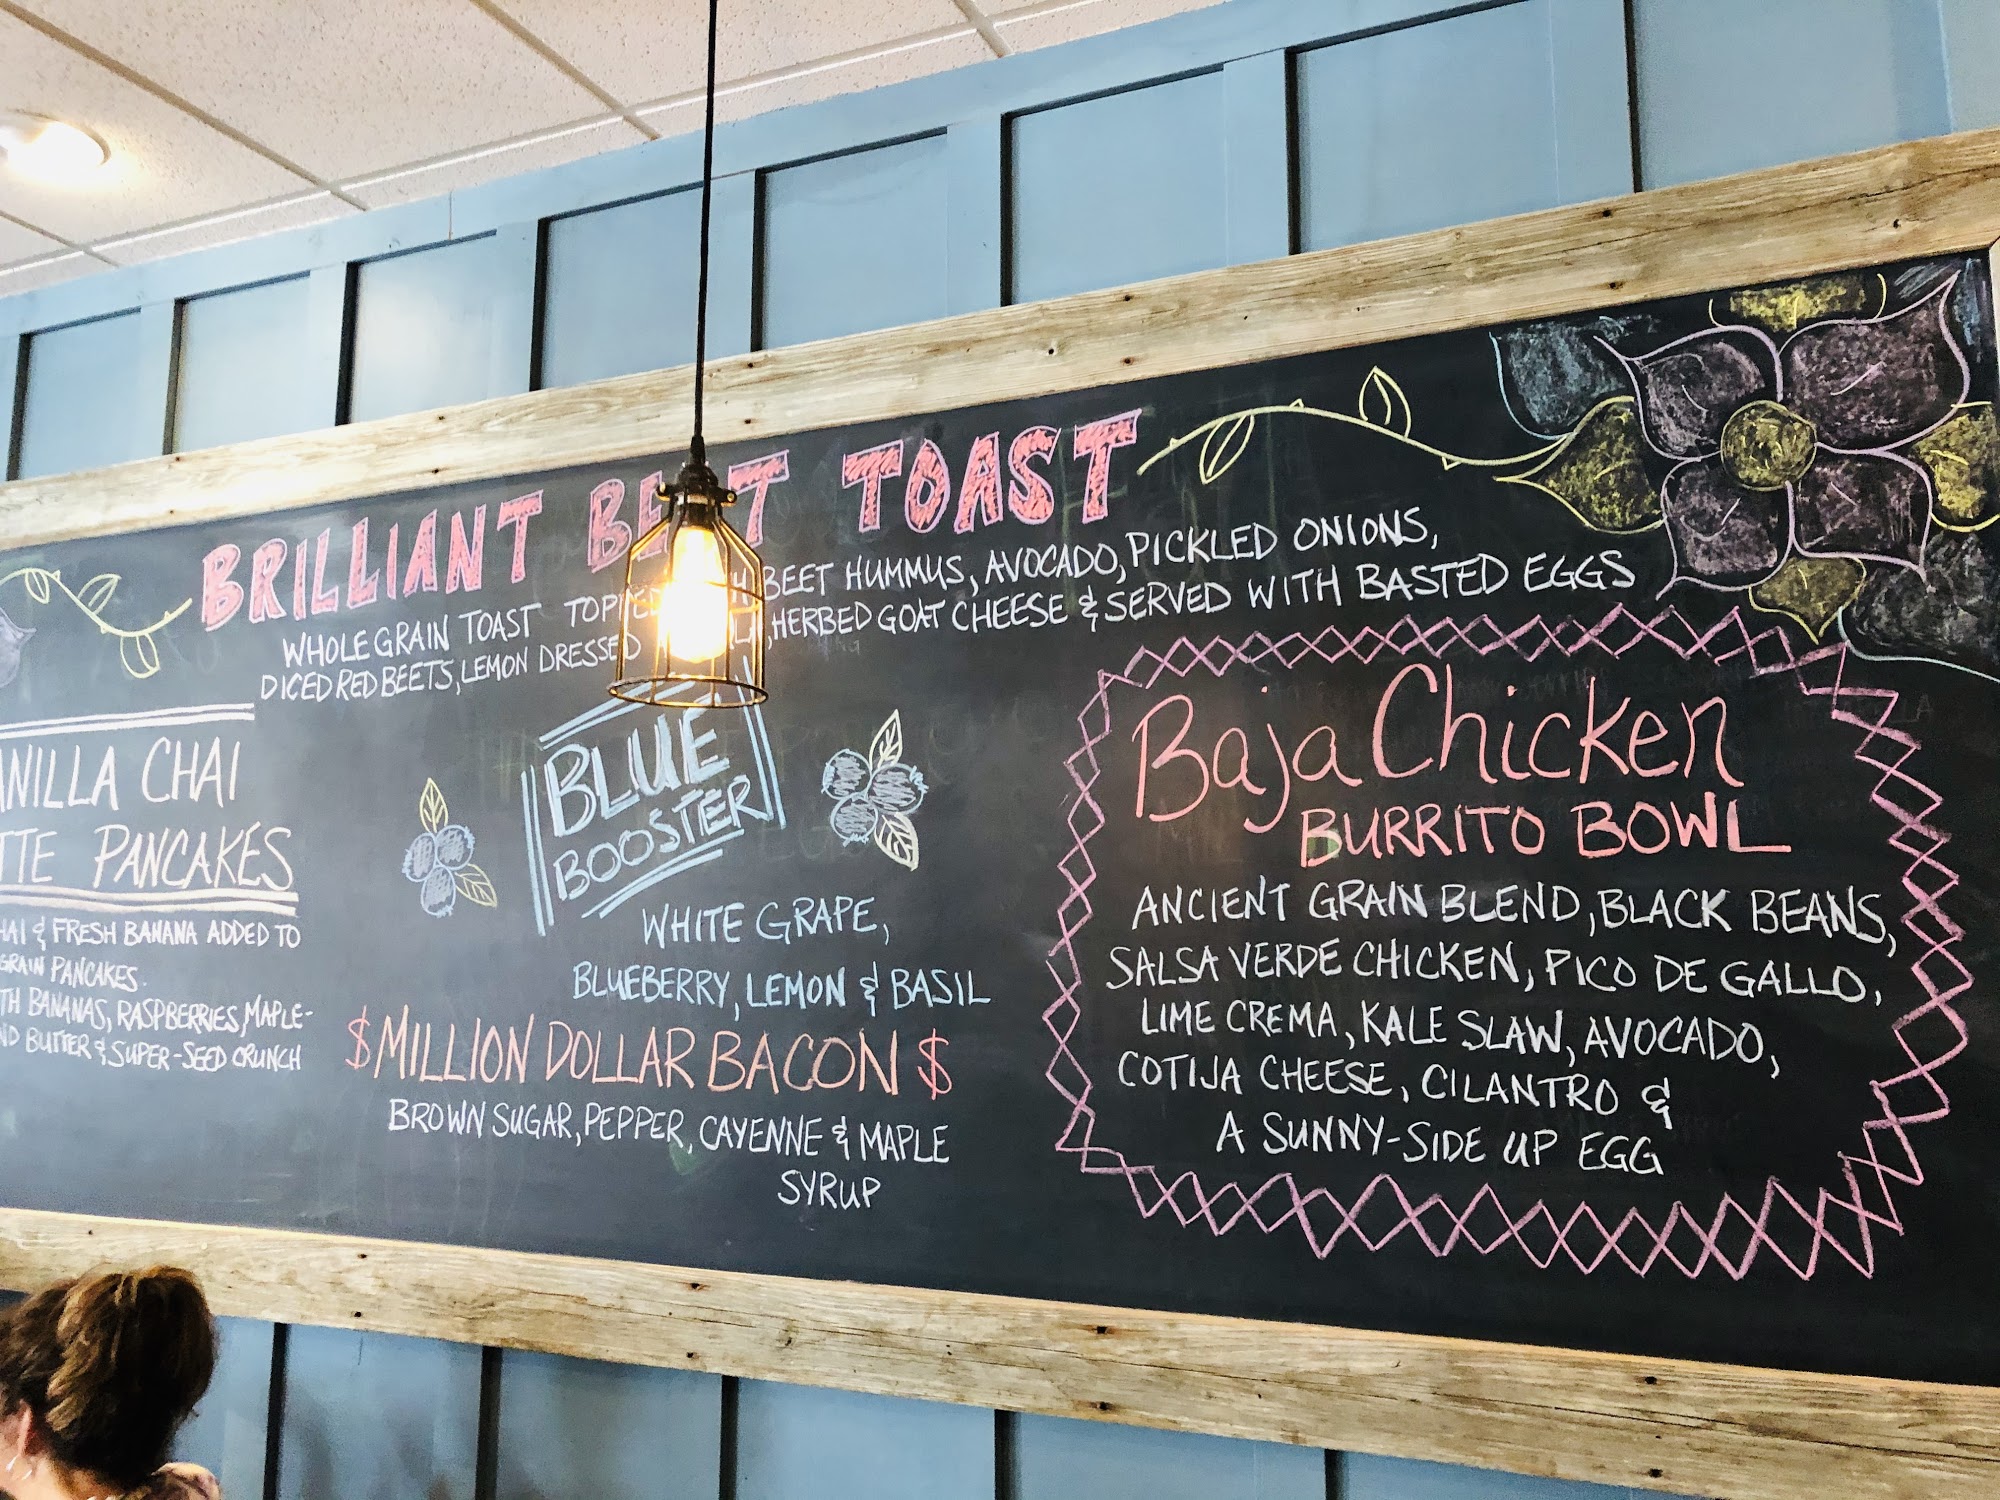 BRILLIANT BEET TOAST
WHOLE GRAIN TOAST TOPPED BEET HUMMUS, AVOCADO, PICKLED ONIONS,
DICED RED BEETS, LEMON DRESSED HERBED GOAT CHEESE & SERVED WITH BASTED EGGS
ANILLA CHAI
TTE PANCAKES
HAI & FRESH BANANA ADDED TO
GRAIN PANCAKES.
TH BANANAS, RASPBERRIES, MAPLE-
ND BUTTER & SUPER-SEED CRUNCH
BLUE
BOOSTER
WHITE GRAPE,
BLUEBERRY, LEMON & BASIL
$ MILLION DOLLAR BACON $
BROWN SUGAR, PEPPER, CAYENNE & MAPLE
SYRUP
Baja Chicken
BURRITO BOWL
ANCIENT GRAIN BLEND, BLACK BEANS,
SALSA VERDE CHICKEN, PICO DE GALLO,
LIME CREMA, KALE SLAW, AVOCADO,
COTIJA CHEESE, CILANTRO &
A SUNNY-SIDE UP EGG